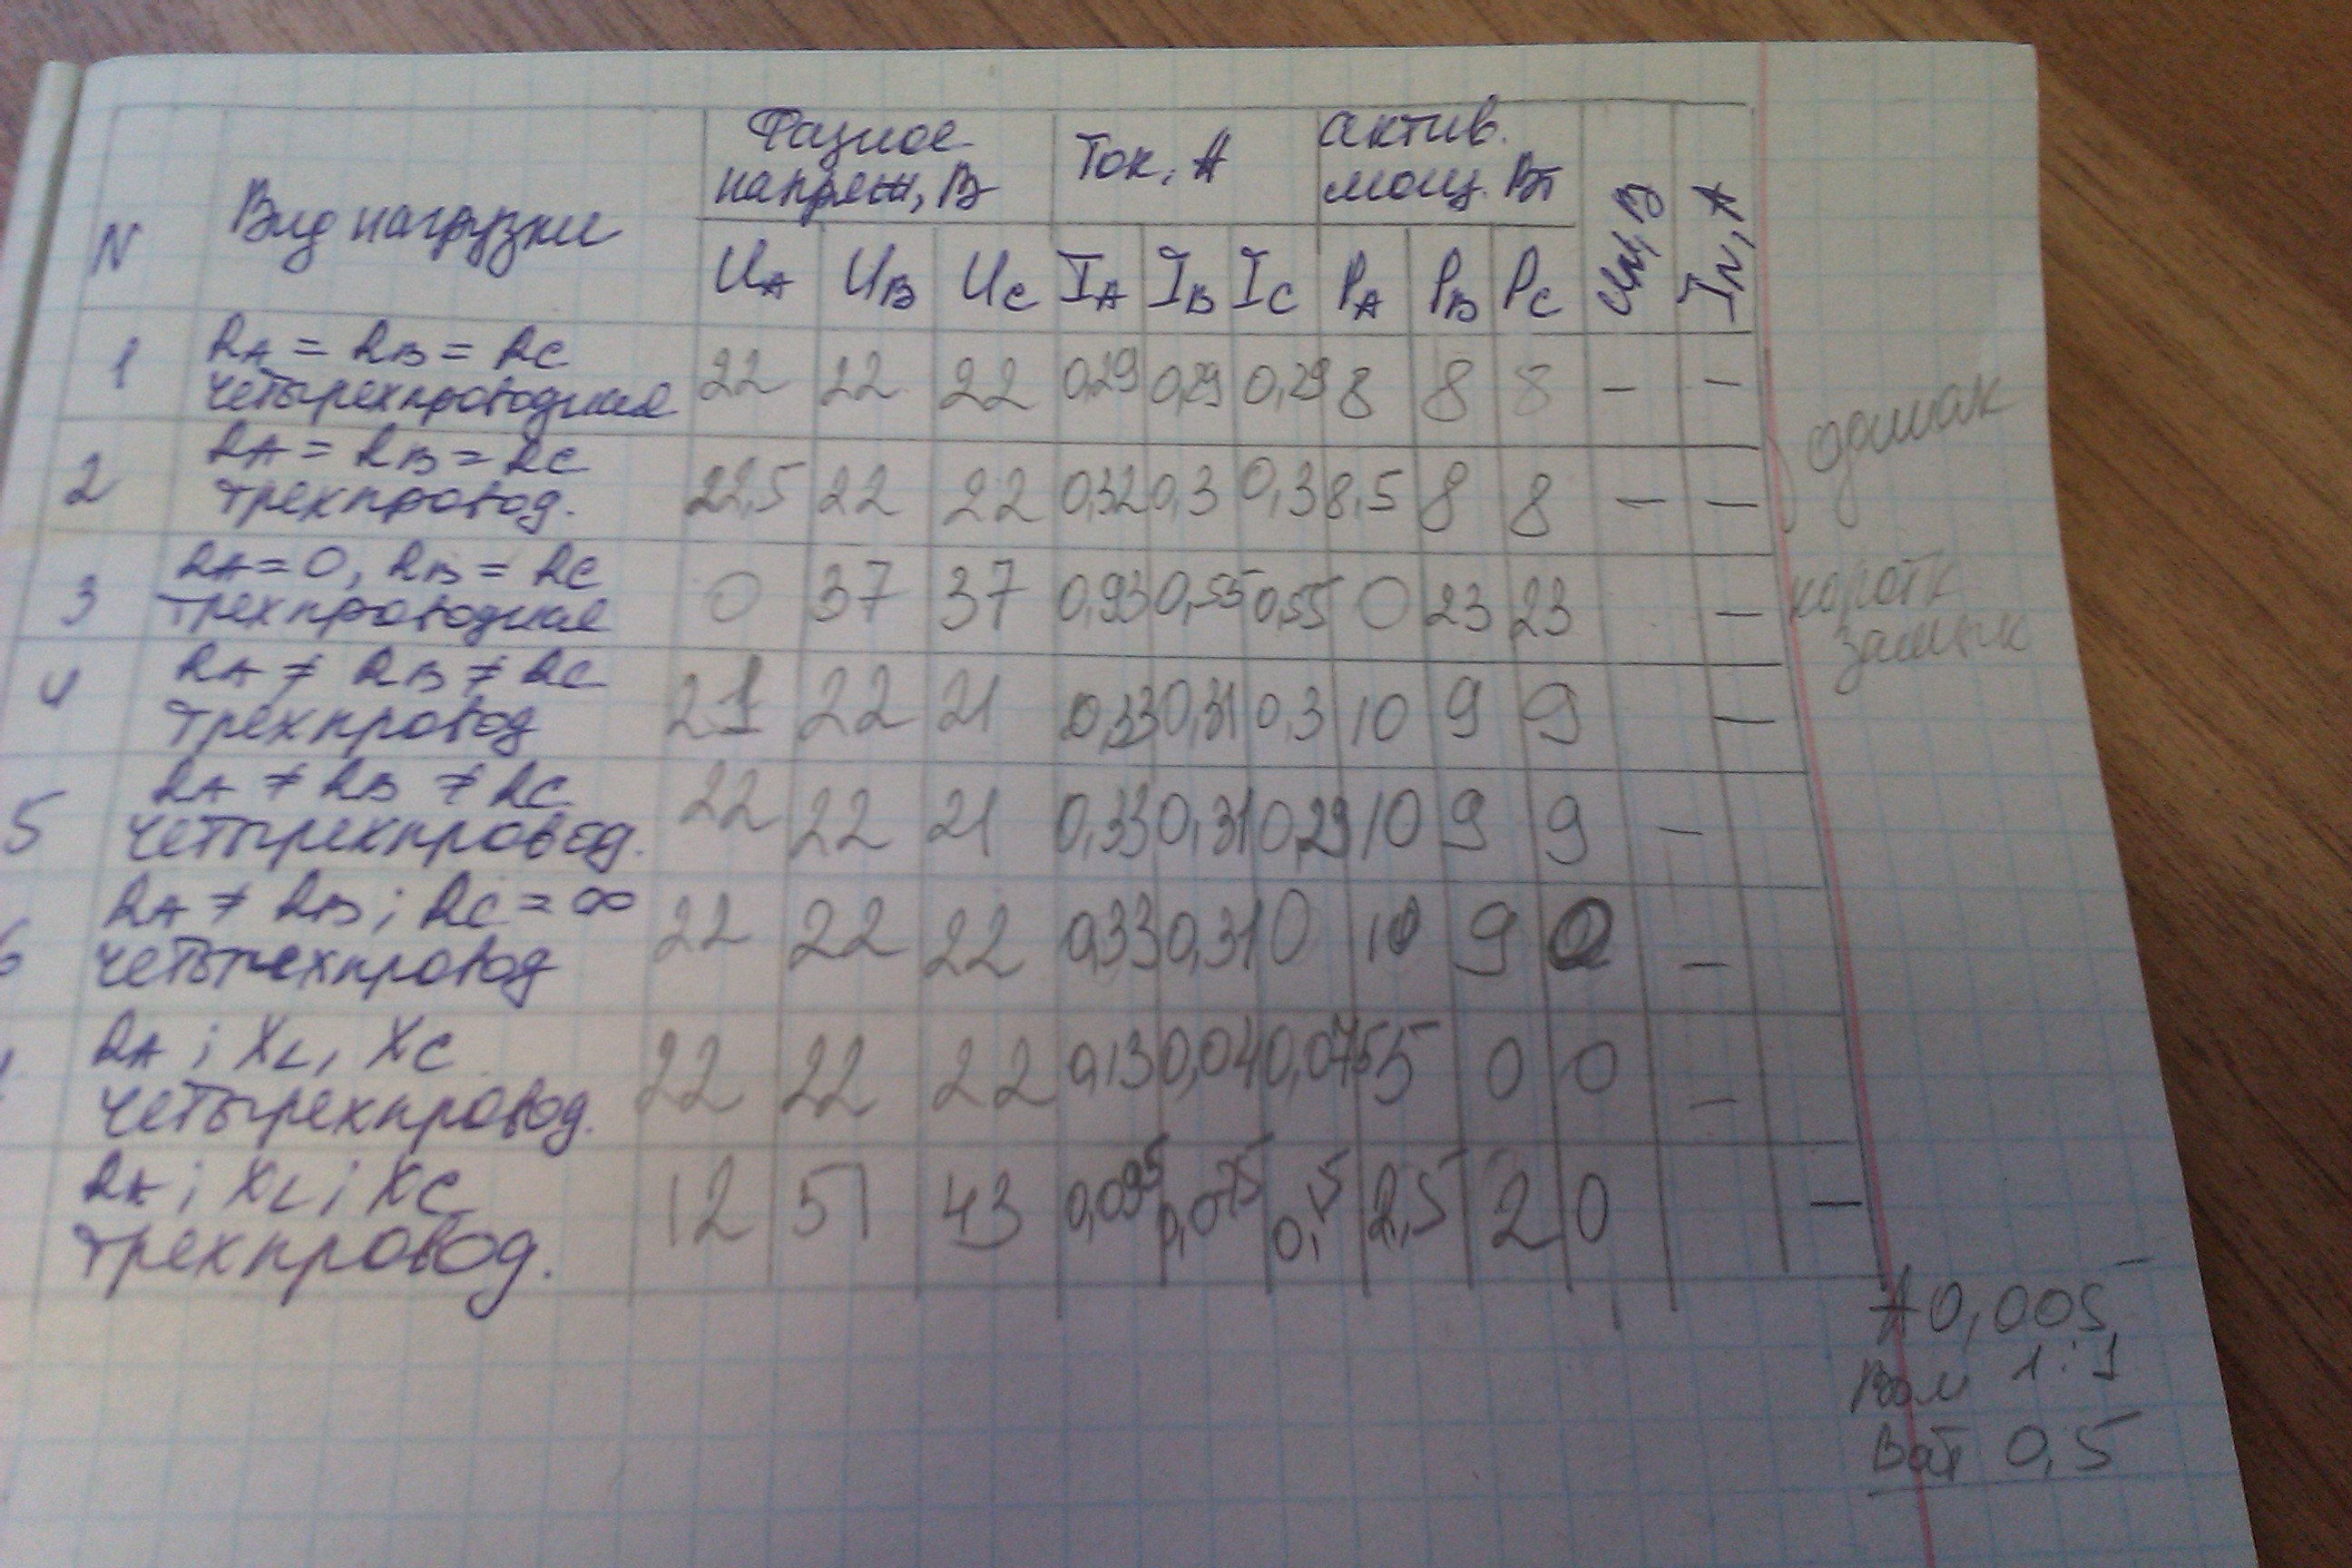 Фазное напряж, В Ток, А Актив. мощ. Вт
N Вид нагрузки UA UB UC IA IB IC PA PB PC UN, В IN, А
1 RA = RB = RC
четырехпроводная 22 22 22 0,29 0,29 0,29 8 8 8 – –
одинак
2 RA = RB = RC
трехпровод. 22,5 22 22 0,32 0,3 0,3 8,5 8 8 – –
3 RA = 0, RB = RC
трехпроводная 0 37 37 0,93 0,55 0,55 0 23 23 –
коротк
замык
4 RA ≠ RB ≠ RC
трехпровод 21 22 21 0,33 0,31 0,3 10 9 9 –
5 RA ≠ RB ≠ RC
четырехпровод. 22 22 21 0,33 0,31 0,29 10 9 9 –
6 RA ≠ RB; RC = ∞
четырехпровод 22 22 22 0,33 0,31 0 10 9 0 –
RA; XL, XC
четырехпровод. 22 22 22 0,13 0,04 0,075 5 0 0 –
RA; XL; XC
трехпровод. 12 51 43 0,095 0,075 0,15 2,5 2 0 –
А 0,005
Вол 1:1
Ват 0,5